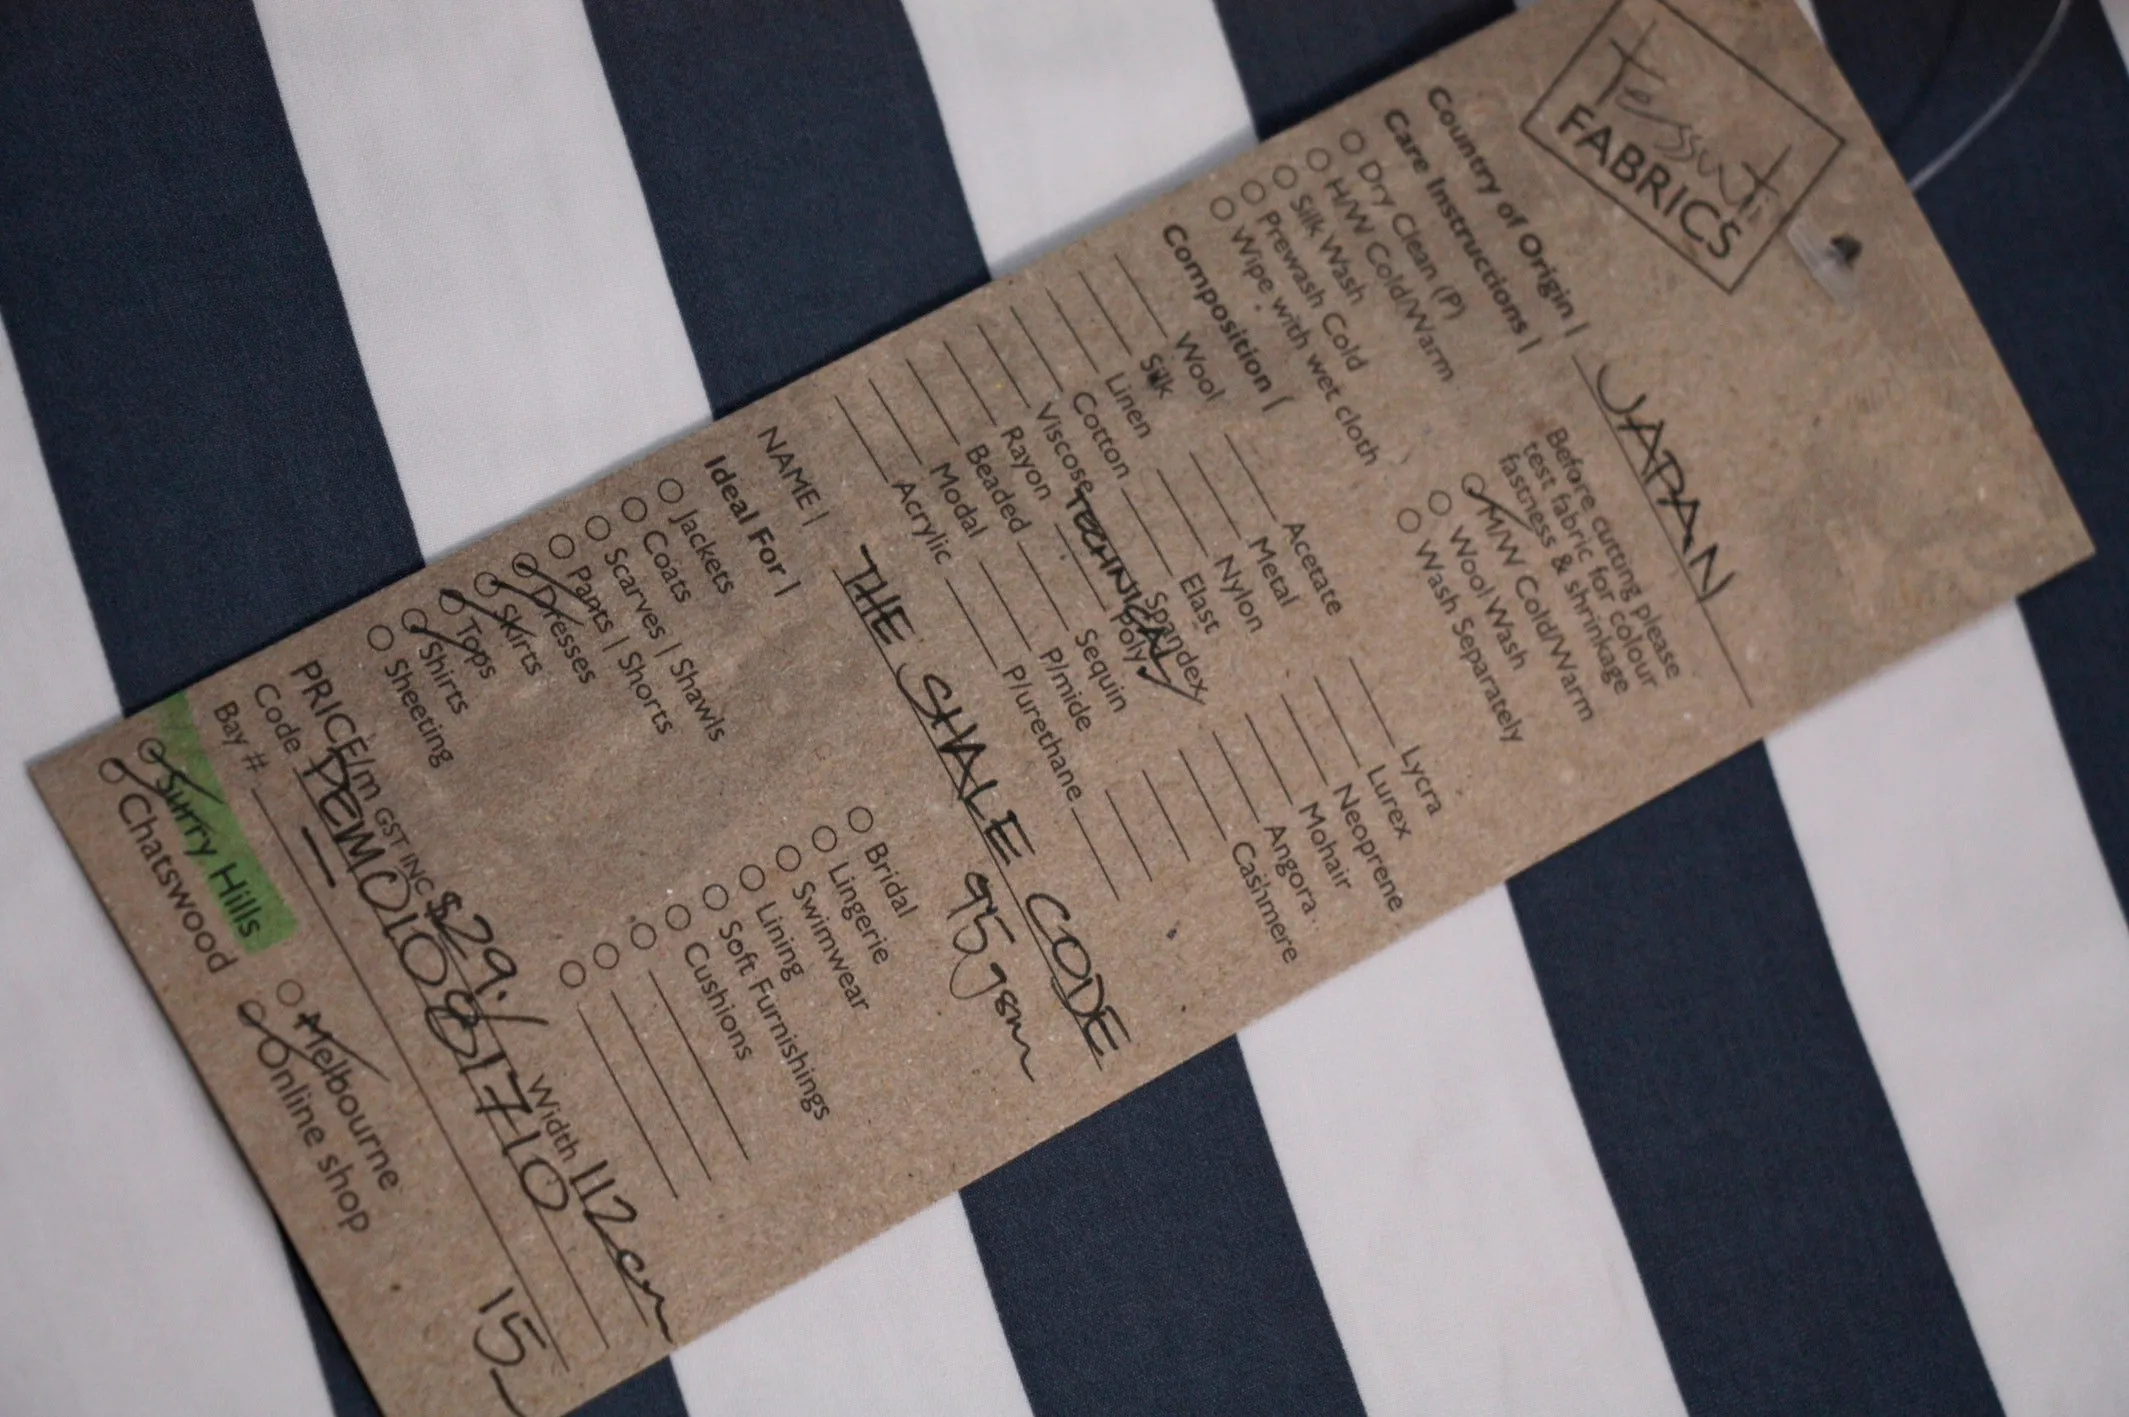 Tessuti
FABRICS
Country of Origin | JAPAN
Care Instructions |
Before cutting please
test fabric for colour
fastness & shrinkage
Dry Clean (P)
H/W Cold/Warm
Silk Wash
Prewash Cold
Wipe with wet cloth
M/W Cold/Warm
Wool Wash
Wash Separately
Composition |
Wool Acetate Lycra
Silk Metal Lurex
Linen Nylon Neoprene
Cotton Elast Mohair
Viscose TECHNICAL Spandex Angora
Rayon Poly Cashmere
Beaded Sequin
Modal P/mide
Acrylic P/urethane
NAME | THE SHALE CODE
95gsm
Ideal For |
Jackets Bridal
Coats Lingerie
Scarves | Shawls Swimwear
Pants | Shorts Lining
Dresses Soft Furnishings
Skirts Cushions
Tops
Shirts
Sheeting
PRICE/m GST INC $29./ Width 112cm
Code DEMO1081710
Bay # 15
Surry Hills Melbourne
Chatswood Online shop